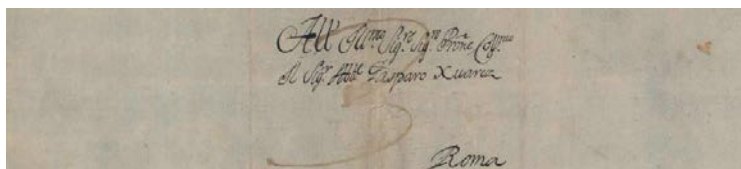 All' Ill.mo Sig.re Sig.r P.rone Col.mo
Il Sig.r Abb.te Gasparo Xuarez
Roma